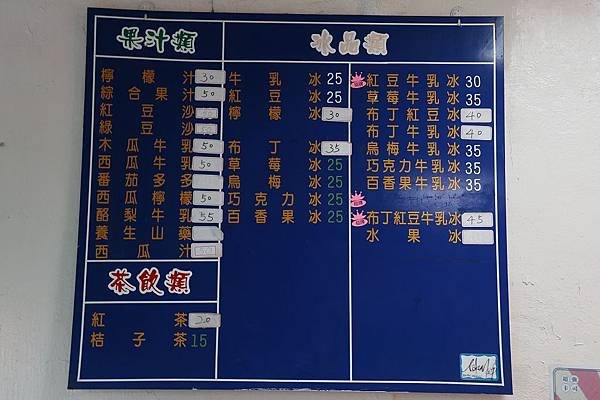 果汁類
檸檬汁 30
綜合果汁 50
紅豆沙
綠豆沙
木瓜牛乳 50
西瓜牛乳 50
番茄多多
西瓜檸檬 50
酪梨牛乳 55
養生山藥
西瓜汁
茶飲類
紅茶 20
桔子茶 15
冰品類
牛乳冰 25
紅豆冰 25
檸檬冰 30
布丁冰 35
草莓冰 25
烏梅冰 25
巧克力冰 25
百香果冰 25
紅豆牛乳冰 30
草莓牛乳冰 35
布丁紅豆冰 40
布丁牛乳冰 40
烏梅牛乳冰 35
巧克力牛乳冰 35
百香果牛乳冰 35
布丁紅豆牛乳冰 45
水果冰